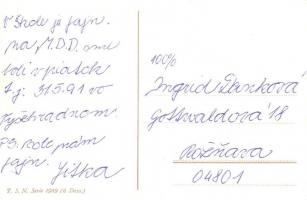 V škole je fajn.
na M.D.D. sme
boli v piatok
t.j. 31.5.91 vo
Vyšehradnom.
P.S. Bolo nám
fajn. Jitka
T. S. N. Serie 1919 (6 Dess.)
100%
Ingrid
Gottwaldová 18
Rožňava
04801